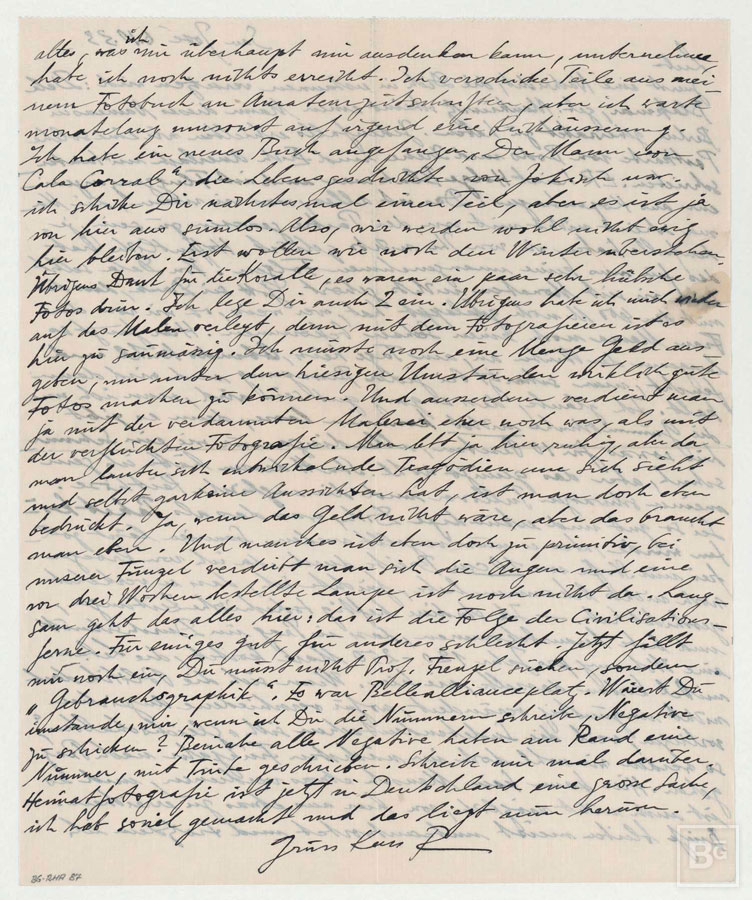 alles, was ich mir überhaupt nur ausdenken kann, unternehme,
habe ich noch nichts erreicht. Ich verschicke Teile aus mei-
nem Fotobuch an Amateurzeitschriften, aber ich warte
monatelang umsonst auf irgend eine Rückäusserung.
Ich habe ein neues Buch angefangen „Der Mann von
Cala Corral“, die Lebensgeschichte von Jokisch
ich schicke Dir nächstesmal einen Teil, aber es ist ja
von hier aus sinnlos. Also, wir werden wohl nicht ewig
hier bleiben. Erst wollen wir noch den Winter überstehen.
Übrigens Dank für die Koralle, es waren ein paar sehr hübsche
Fotos drin. Ich lege Dir auch 2 ein. Übrigens habe ich mich wieder
auf das Malen verlegt, denn mit dem Fotografieren ist es
hier zu saumässig. Ich müsste noch eine Menge Geld aus-
geben, um unter den hiesigen Umständen wirklich gute
Fotos machen zu können. Und ausserdem verdient man
ja mit der verdammten Malerei eher noch was, als mit
der verfluchten Fotografie. Man lebt ja hier ruhig, aber da
man lauter sich entwickelnde Tragödien um sich sieht
und selbst garkeine Aussichten hat, ist man doch eben
bedrückt. Ja, wenn das Geld nicht wäre, aber das braucht
man eben. Und manches ist eben doch zu primitiv, bei
unserer Funzel verdirbt man sich die Augen und eine
vor drei Wochen bestellte Lampe ist noch nicht da. Lang-
sam geht das alles hier; das ist die Folge der Civilisations-
ferne. Für einiges gut, für anderes schlecht. Jetzt fällt
mir noch ein, Du musst nicht Prof. Frenzel suchen, sondern
„Gebrauchsgraphik“. Es war Bellealliancepla​tz. Wärest Du
imstande, mir, wenn ich Dir die Nummern schreibe, Negative
zu schicken? Beinahe alle Negative haben am Rand eine
Nummer, mit Tinte geschrieben. Schreibe mir mal darüber.
Heimatfotografie ist jetzt in Deutschland eine grosse Sache,
ich hab soviel gemacht und das liegt nun herum.
Gruss Kuss R
BG-RHA 87
BG